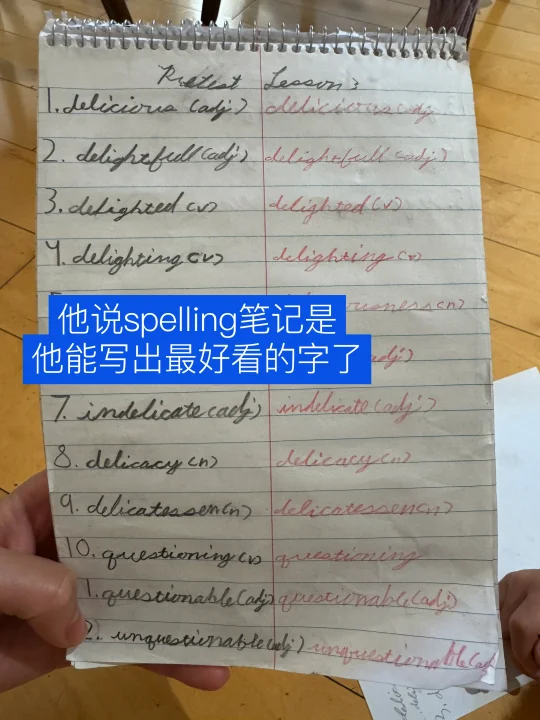 Pretest Lesson 3
1. delicious (adj) delicious (adj
2. delightfull (adj) delightfull (adj)
3. delighted (v) delighted (v)
4. delighting (v) delighting (v)
5. ousness (n)
他说spelling笔记是
他能写出最好看的字了
adj)
7. indelicate (adj) indelicate (adj)
8. delicacy (n) delicacy (n)
9. delicatessen (n) delicatessen (n)
10. questioning (v) questioning
1. questionable (adj) questionable (adj)
2. unquestionable (adj) unquestionable (adj